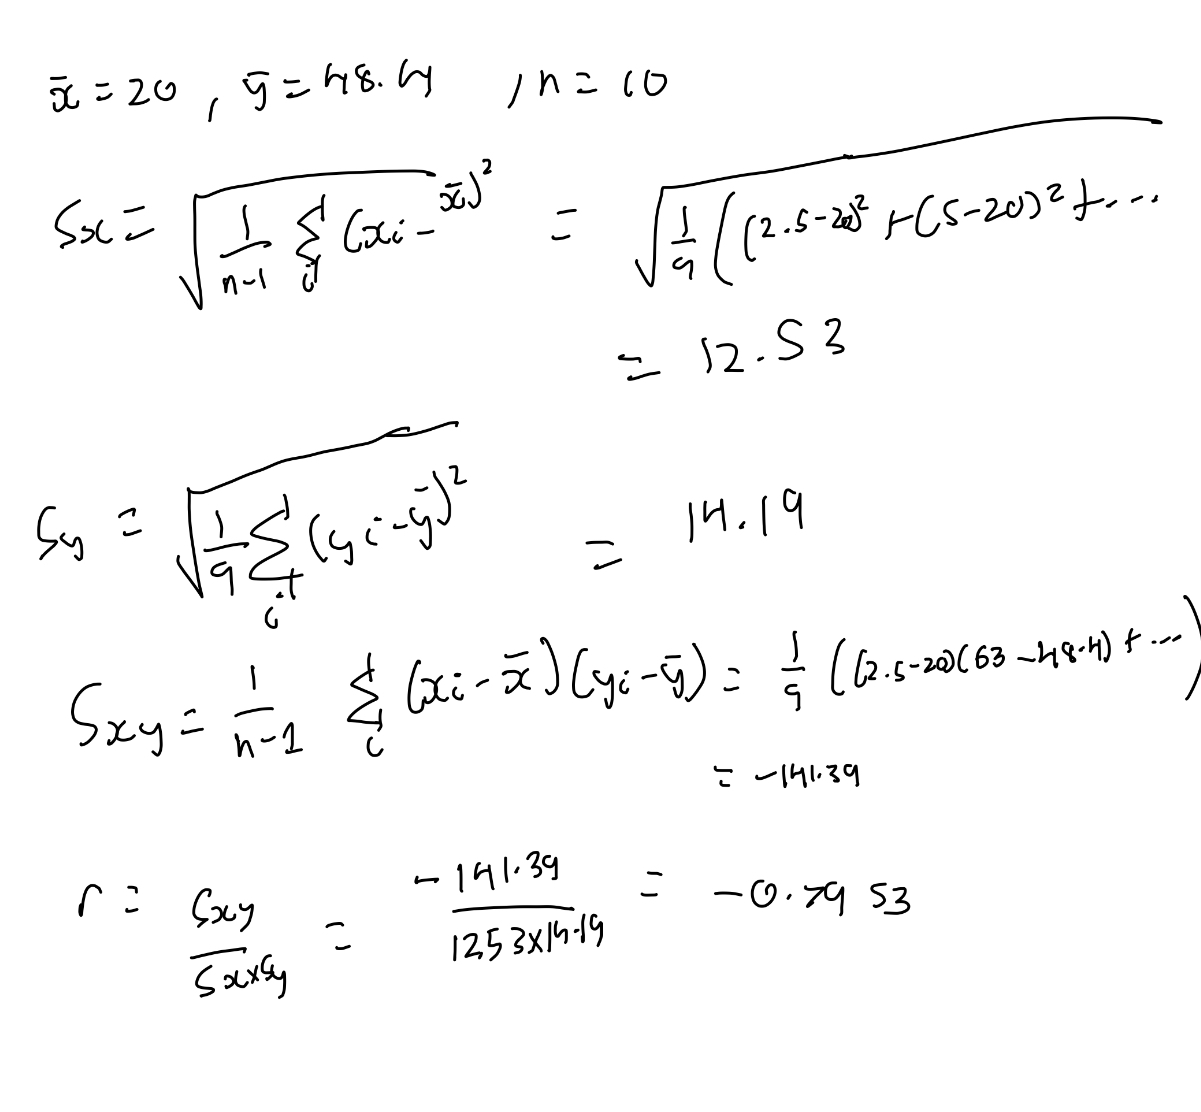 x̄ = 20 , ȳ = 48.4 , n = 10
Sx = √(1/(n-1) Σi (xi - x̄)²) = √(1/9 ((2.5-20)² + (5-20)² + ...
= 12.53
Sy = √(1/9 Σi (yi - ȳ)²) = 14.19
Sxy = 1/(n-1) Σi (xi - x̄)(yi - ȳ) = 1/9 ((2.5-20)(63-48.4) + ...)
= -141.39
r = Sxy/(Sx×Sy) = -141.39/(1253×14.19) = -0.7953